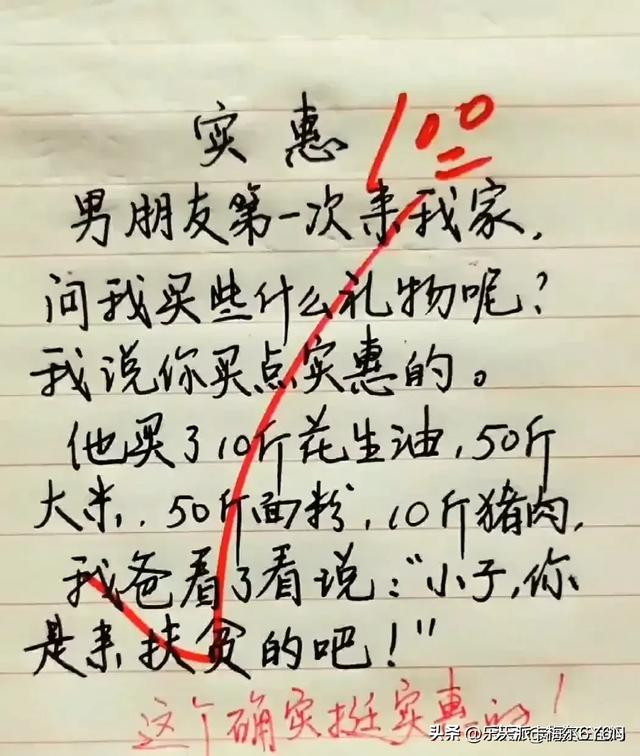 实惠 100
男朋友第一次来我家,
问我买些什么礼物呢?
我说你买点实惠的。
他买了10斤花生油,50斤
大米,50斤面粉,10斤猪肉,
我爸看了看说:“小子,你
是来扶贫的吧!"
这个确实挺实惠的!
头条